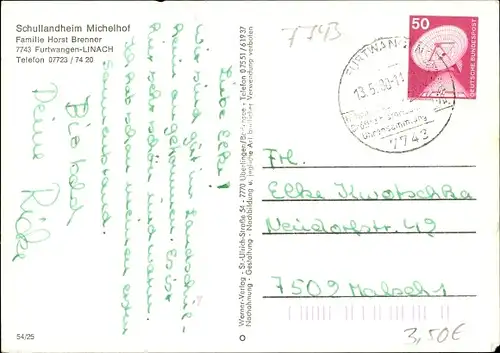 Schullandheim Michelhof
Familie Horst Brenner
7743 Furtwangen-LINACH
Telefon 07723 / 74 20
Liebe Elke!
Wir sind gut im Landschul-
heim angekommen. Es ist
hier sehr schön und warm.
Ich hab schon meinen ersten
Sonnenbrand.
Bis bald
Deine Rike
54/25
Werner-Verlag · St.-Ulrich-Straße 54 · 7770 Überlingen/Bodensee · Telefon 07551/61937
Nachahmung · Gestaltung · Nachbildung u. jegliche Art beruflicher Verwendung verboten
7743
FURTWANGEN
13.5.80-11
Uhrensammlung
7743
50
DEUTSCHE BUNDESPOST
Frl.
Elke Kwotschka
Neudorfstr. 42
7502 Malsch 1
3,50€